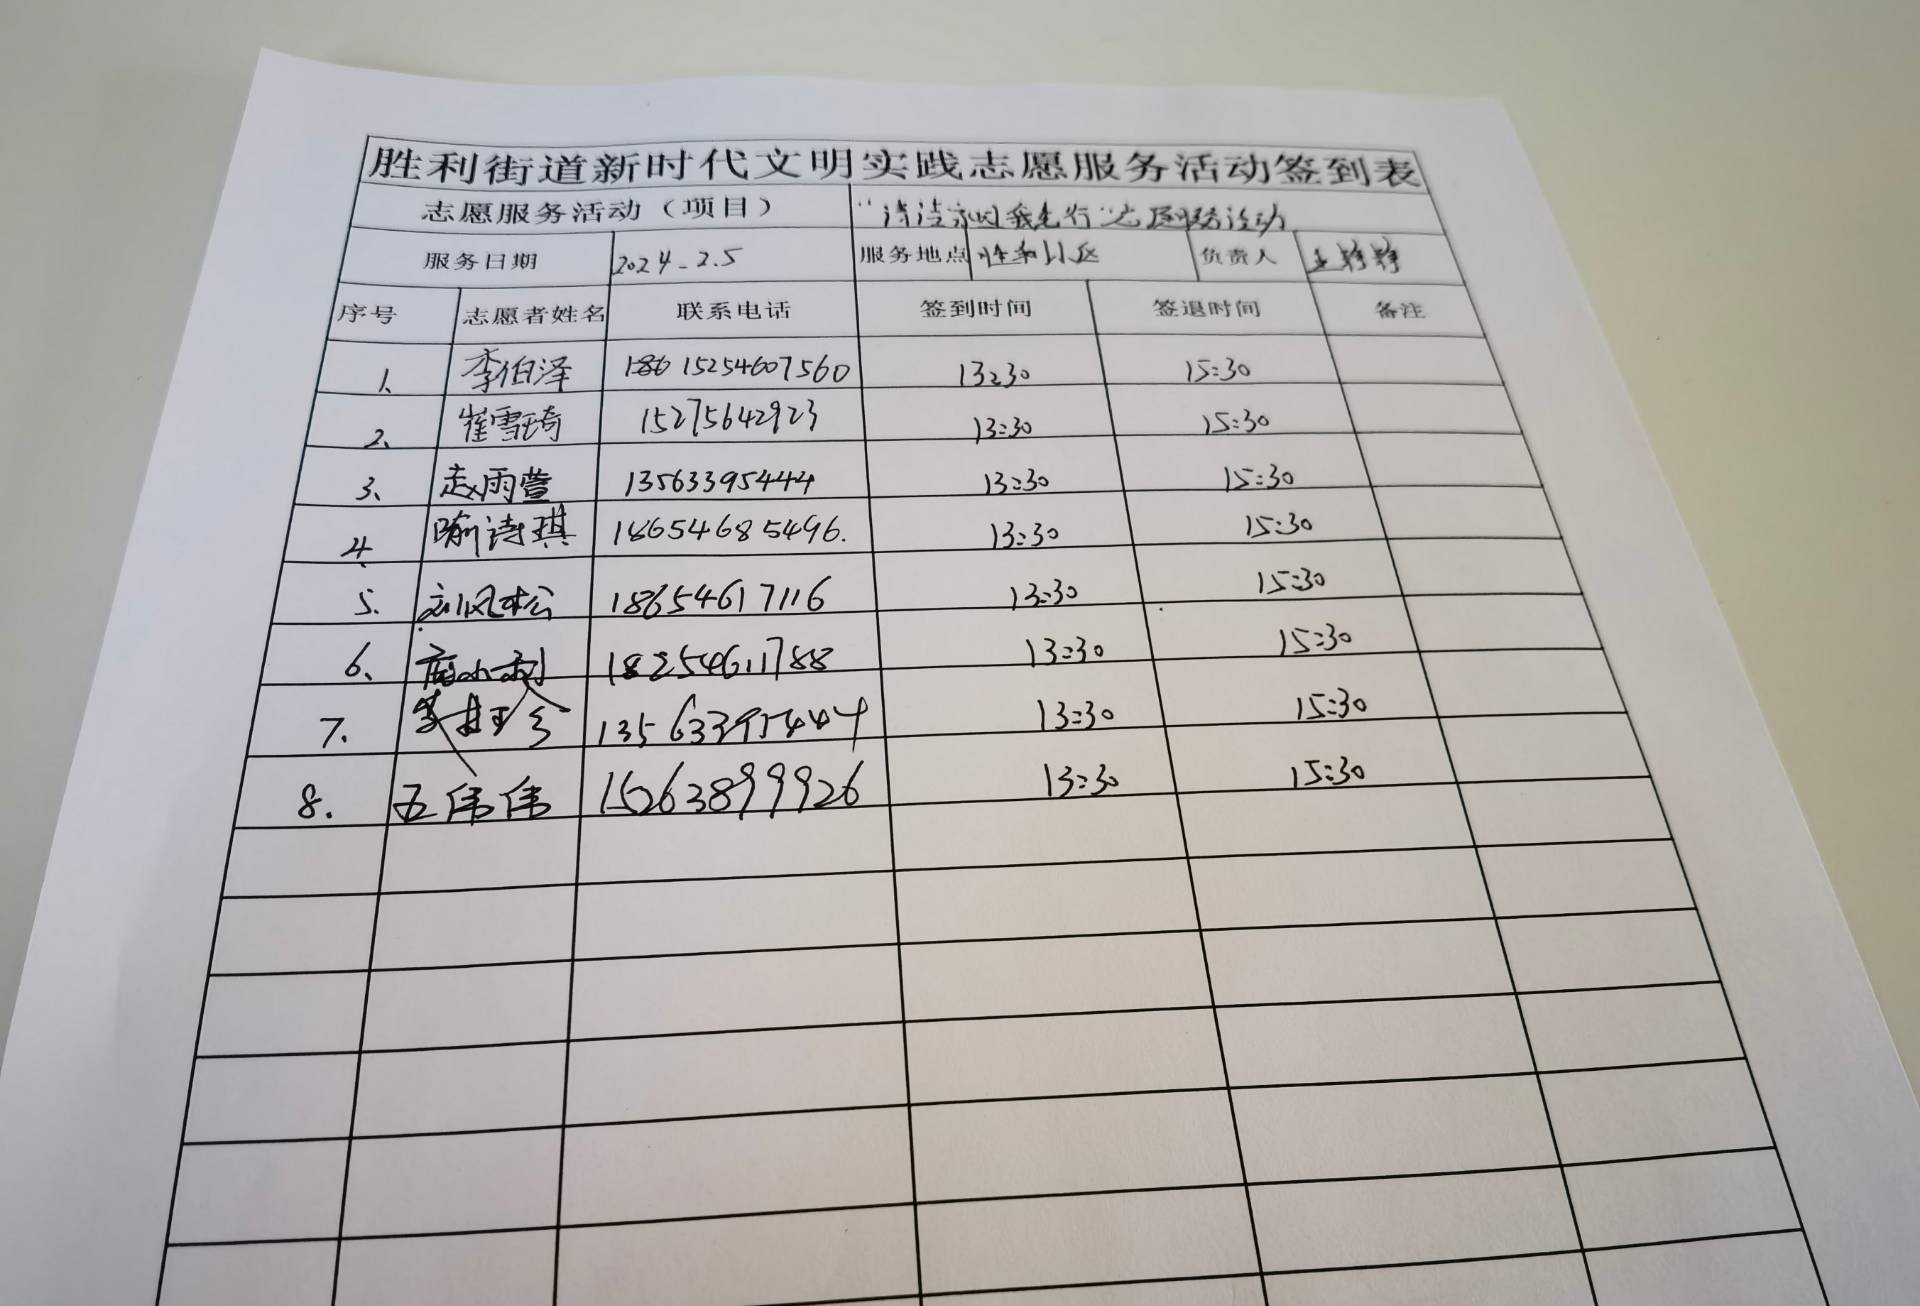 胜利街道新时代文明实践志愿服务活动签到表
志愿服务活动（项目） “清洁家园我先行”志愿服务活动
服务日期 2024.2.5 服务地点 胜利社区 负责人
序号 志愿者姓名 联系电话 签到时间 签退时间 备注
1、 李伯泽 15254607560 13:30 15:30
2、 崔雪琦 15275642923 13:30 15:30
3、 赵雨萱 13563395444 13:30 15:30
4、 喻诗琪 18654685496. 13:30 15:30
5、 刘风松 18654617116 13:30 15:30
6、 18254611788 13:30 15:30
7. 13563395444 13:30 15:30
8. 王伟伟 15263899926 13:30 15:30